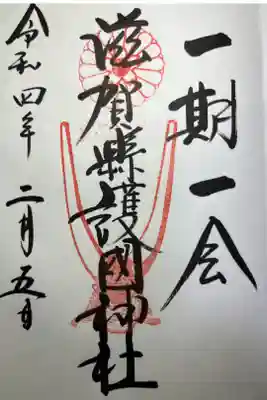 一期一会
滋賀縣護國神社
令和四年 二月五日